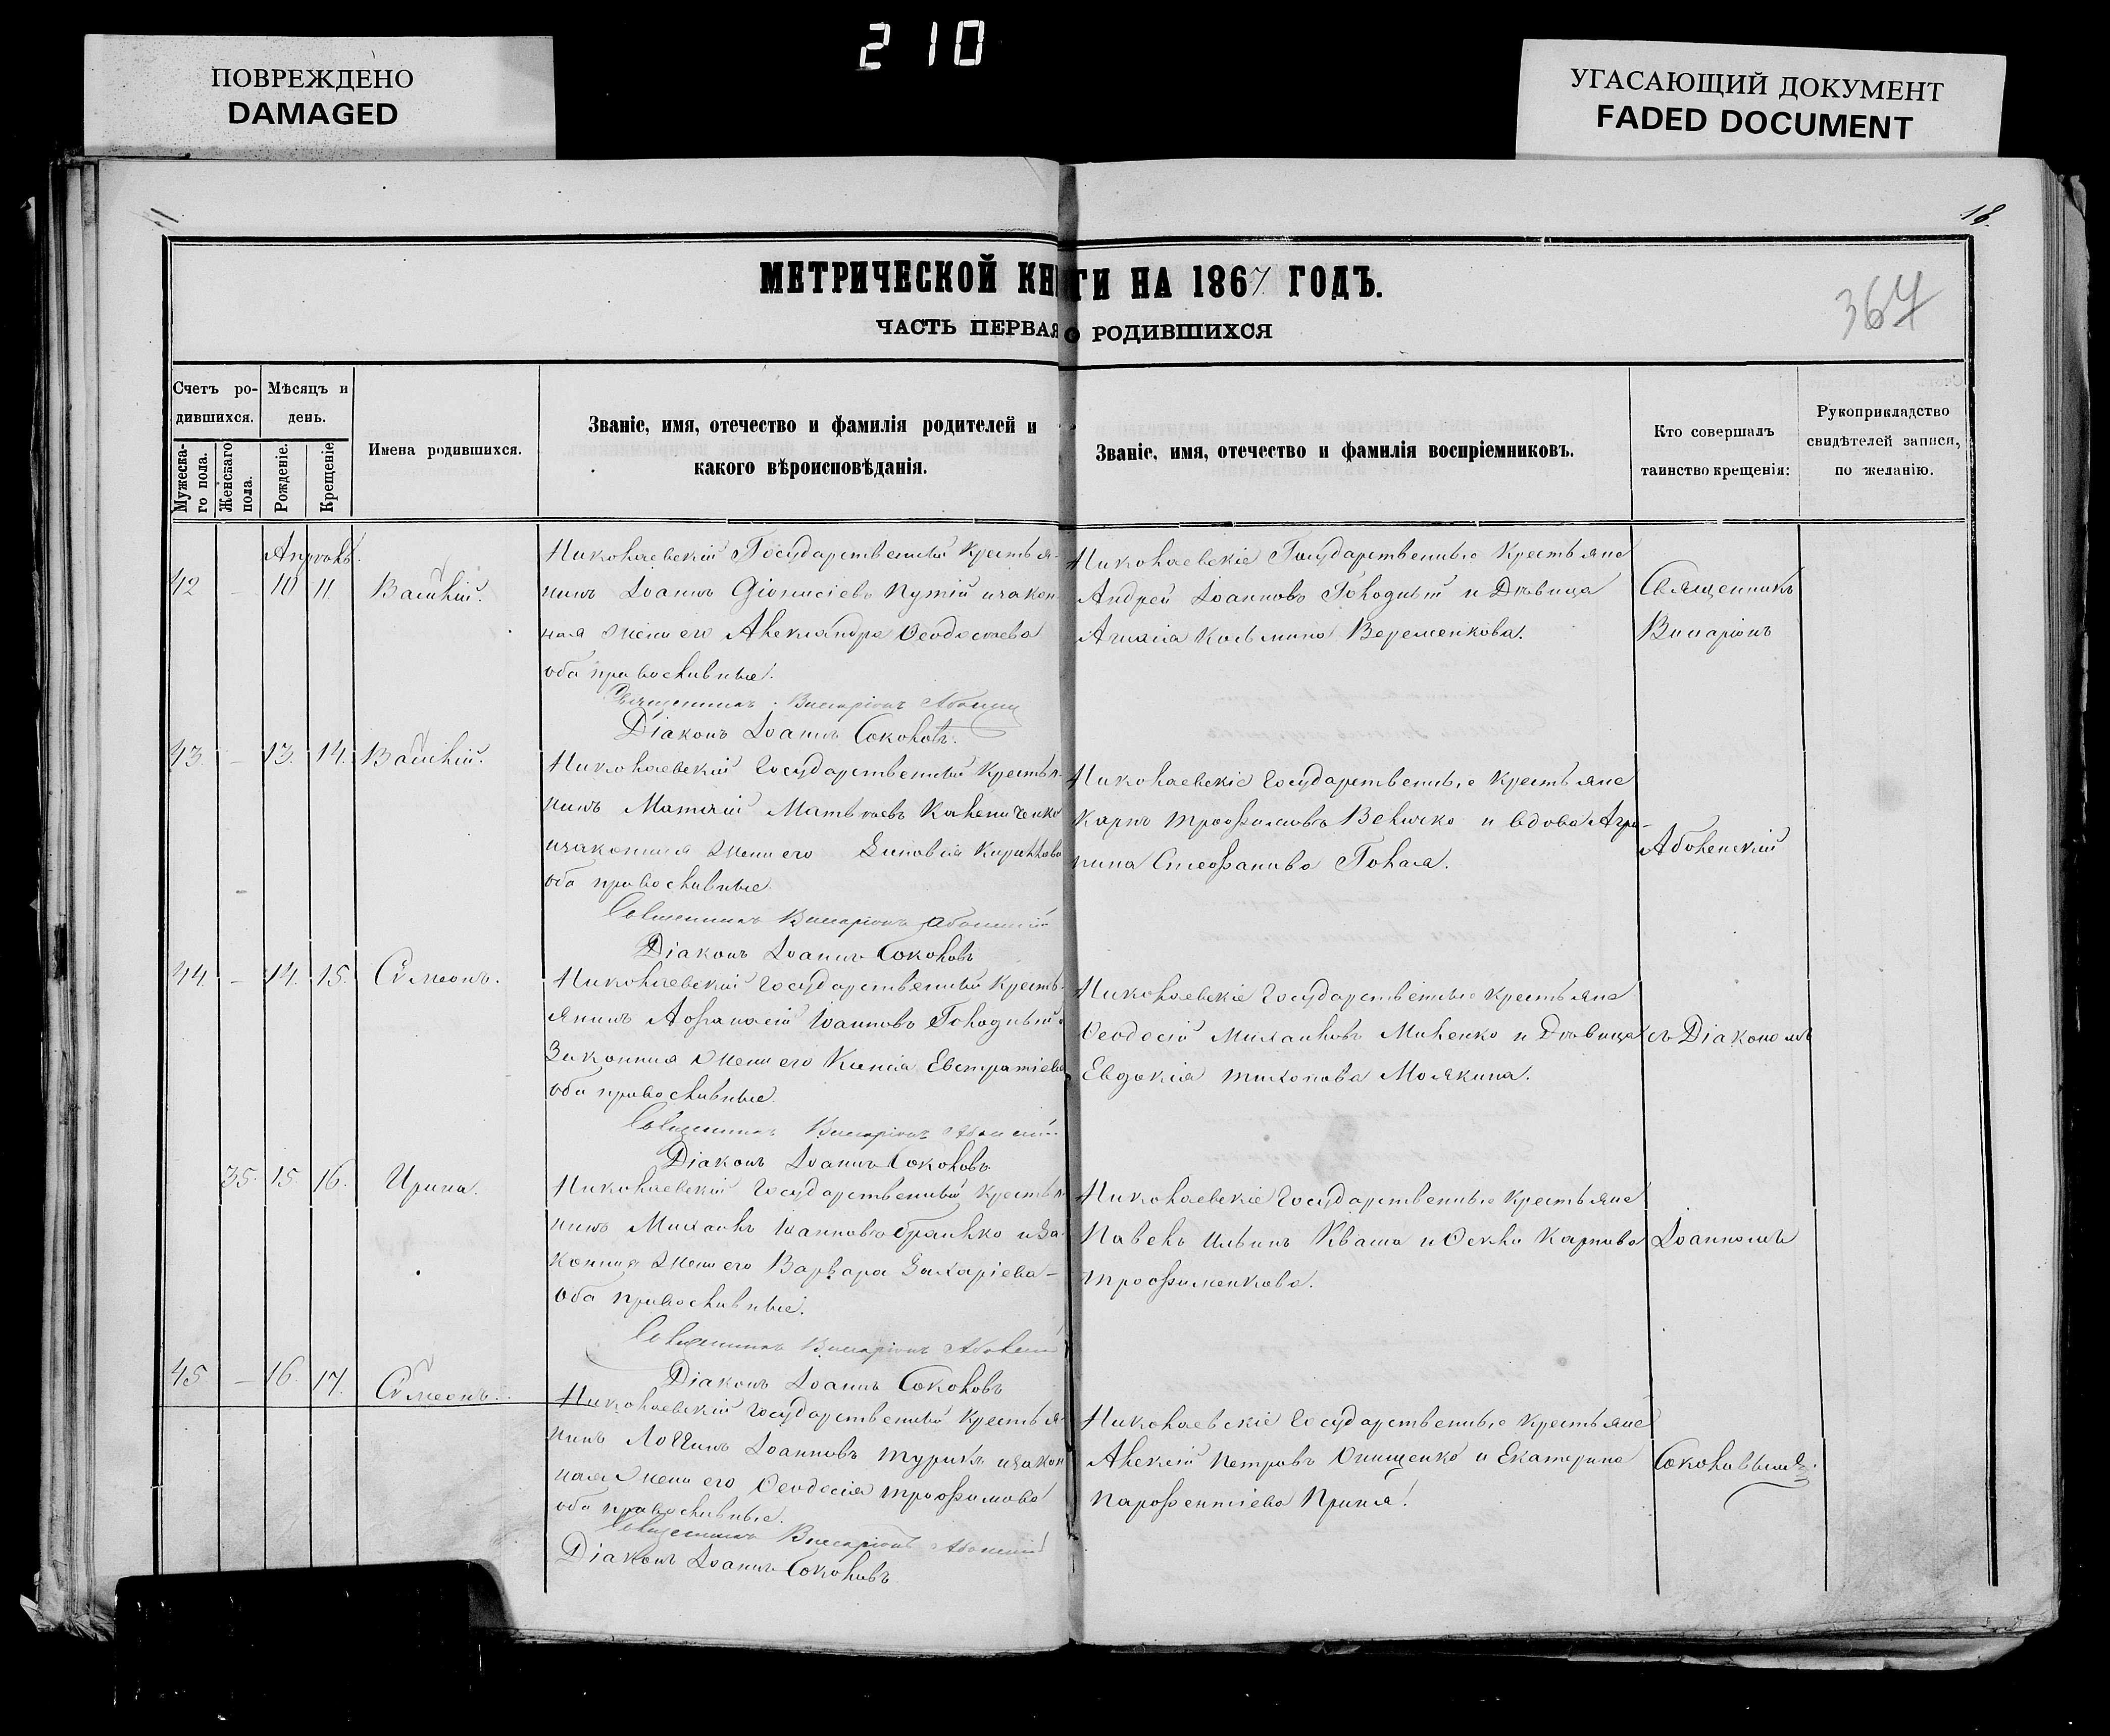 210
ПОВРЕЖДЕНО
DAMAGED
УГАСАЮЩИЙ ДОКУМЕНТ
FADED DOCUMENT
18.
МЕТРИЧЕСКОЙ КНИГИ НА 1867 ГОДЪ.
367
ЧАСТЬ ПЕРВАЯ О РОДИВШИХСЯ
Счетъ ро-
дившихся.
Мужеска-
го пола.
Женскаго
пола.
Мѣсяцъ и
день.
Рожденіе.
Крещеніе
Имена родившихся.
Званіе, имя, отечество и фамилія родителей и
какого вѣроисповѣданія.
Званіе, имя, отечество и фамилія воспріемниковъ.
Кто совершалъ
таинство крещенія:
Рукоприкладство
свидѣтелей записи,
по желанію.
Апрѣль.
42 – 10 11 Василій.
Николаевскій Государственный Крестья-
нинъ Іоаннъ Діонисіевъ изакон-
ная жена его Александра Ѳеодосіева
оба православные.
Священникъ Виссаріонъ
Діаконъ Іоаннъ Соколовъ.
Николаевскіе Государственные Крестьяне
Андрей Іоанновъ Голодный и Дѣвица
Косьмина Веременкова.
Священникъ
Виссаріонъ
43. – 13. 14. Василій.
Николаевскій Государственный Крестья-
нинъ Матвѣевъ
изаконная жена его Зиновія Кириллова
оба православные
Священникъ Виссаріонъ
Діаконъ Іоаннъ Соколовъ
Николаевскіе Государственные Крестьяне
Карпъ Трофимовъ Величко и вдова Агри-
пина Стефанова Голая.
44. – 14. 15. Сѵмеонъ.
Николаевскій Государственный Кресть-
янинъ Афанасій Іоанновъ Голодный и
Законная жена его Ксенія Евстратіева
оба православные.
Священникъ Виссаріонъ
Діаконъ Іоаннъ Соколовъ
Николаевскіе Государственные Крестьяне
Ѳеодосій Михаиловъ Миленко и Дѣвица
Евдокія Тихонова Молякина.
съ Діакономъ
35. 15. 16. Ирина.
Николаевскій Государственный Крестья-
нинъ Михаилъ Іоанновъ иза-
конная жена его Варвара Захаріева –
оба православные.
Священникъ Виссаріонъ
Діаконъ Іоаннъ Соколовъ
Николаевскіе Государственные Крестьяне
Павелъ Ильинъ Кваша и Ѳекла Карпова
Трофименкова.
Іоанномъ
45 – 16. 17. Сѵмеонъ.
Николаевскій Государственный Крестья-
нинъ Логгинъ Іоанновъ Турикъ изакон
ная жена его Ѳеодосія Трофимова
оба православные.
Священникъ Виссаріонъ
Діаконъ Іоаннъ Соколовъ
Николаевскіе Государственные Крестьяне
Алексій Петровъ Онищенко и Екатерина
Парфентіева
Соколовымъ.